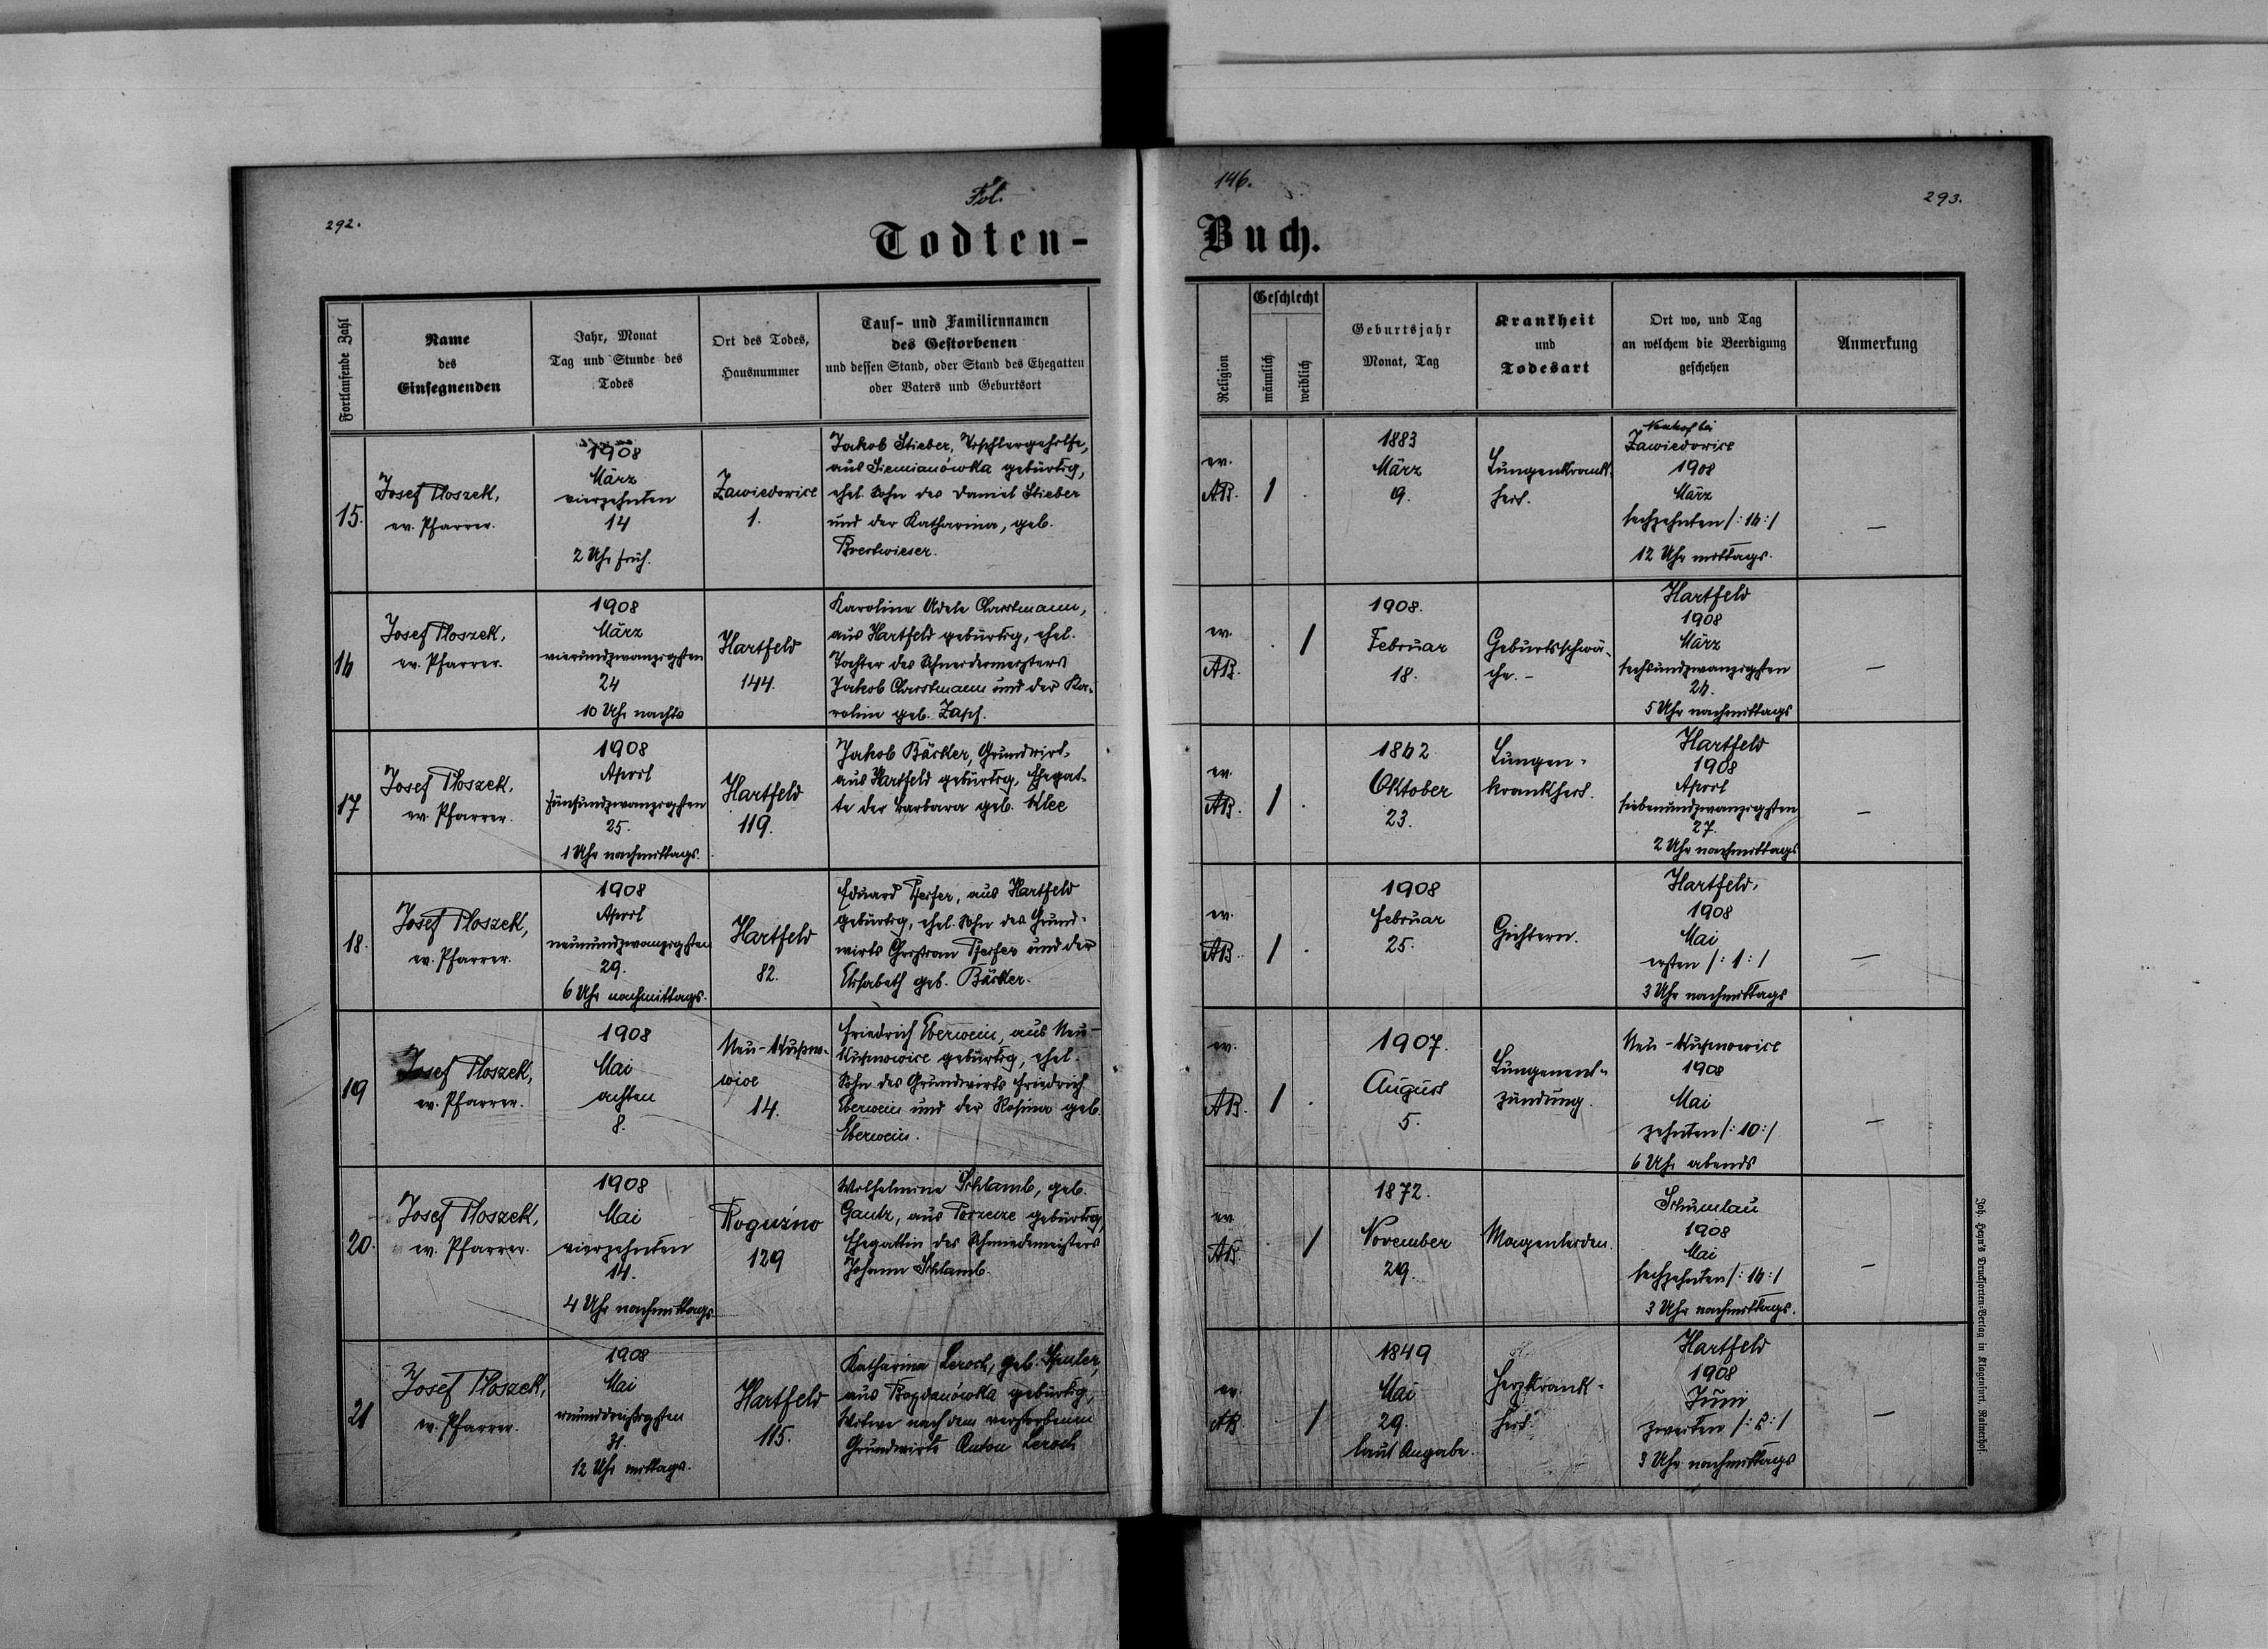 292.
Fol.
146.
293.
Todten-
Buch.
Fortlaufende Zahl
Name
des
Einsegnenden
Jahr, Monat
Tag und Stunde des
Todes
Ort des Todes,
Hausnummer
Tauf- und Familiennamen
des Gestorbenen
und dessen Stand, oder Stand des Ehegatten
oder Vaters und Geburtsort
Religion
Geschlecht
männlich
weiblich
Geburtsjahr
Monat, Tag
Krankheit
und
Todesart
Ort wo, und Tag
an welchem die Beerdigung
geschehen
Anmerkung
15.
Josef Ploszek,
ev. Pfarrer.
1908
März
vierzehnten
14
2 Uhr früh.
Zawiedovice
1.
Jakob Stieber, Tischlergehilfe,
aus Siemianówka gebürtig,
ehel. Sohn des Daniel Stieber
und der Katharina, geb.
ev.
AB.
1 .
1883
März
9.
Lungenkrank-
heit.
Neuhof bei
Zawiedovice
1908
März
sechzehnten /: 16 :/
12 Uhr mittags.
—
16
Josef Ploszek,
ev. Pfarrer.
1908
März
vierundzwanzigsten
24
10 Uhr nachts
Hartfeld
144.
Karoline Adele
aus Hartfeld gebürtig, ehel.
Tochter des Schneidermeisters
Jakob und der Ka-
roline geb. Zapf.
ev.
AB.
. 1
1908.
Februar
18.
Geburtsschwä-
che. -
Hartfeld
1908
März
sechsundzwanzigsten
26.
5 Uhr nachmittags
—
17
Josef Ploszek,
ev. Pfarrer.
1908
April
fünfundzwanzigsten
25.
1 Uhr nachmittags.
Hartfeld
119.
Jakob Bäcker, Grundwirt,
aus Hartfeld gebürtig, Ehegat-
te der Barbara geb. Klee
ev.
AB.
1 .
1862
Oktober
23.
Lungen-
krankheit.
Hartfeld
1908
April
siebenundzwanzigsten
27.
2 Uhr nachmittags
—
18.
Josef Ploszek,
ev. Pfarrer.
1908
April
neunundzwanzigsten
29.
6 Uhr nachmittags.
Hartfeld
82.
Eduard Pfeifer, aus Hartfeld
gebürtig, ehel. Sohn des Grund-
wirts Christian Pfeifer und der
Elisabeth geb. Bäcker.
ev.
AB.
1 .
1908
Februar
25.
Gichtern.
Hartfeld,
1908
Mai
ersten /: 1 :/
3 Uhr nachmittags
—
19
Josef Ploszek,
ev. Pfarrer.
1908
Mai
achten
8.
Neu-Kuhno-
wice
14.
Friedrich Eberwein, aus Neu-
Kuhnowice gebürtig, ehel.
Sohn des Grundwirts Friedrich
Eberwein und der Rosina geb.
Eberwein.
ev.
AB.
1 .
1907.
August
5.
Lungenent-
zündung.
Neu-Kuhnowice
1908
Mai
zehnten /: 10 :/
6 Uhr abends
—
20.
Josef Ploszek,
ev. Pfarrer.
1908
Mai
vierzehnten
14.
4 Uhr nachmittags
Roguźno
129
Wilhelmine Schlamb, geb.
Gautz, aus Porzecze gebürtig,
Ehegattin des Schmiedemeisters
Johann Schlamb.
ev
AB.
. 1
1872.
November
29.
Magenleiden.
Schumlau
1908
Mai
sechzehnten /: 16 :/
3 Uhr nachmittags.
—
21
Josef Ploszek,
ev. Pfarrer.
1908
Mai
einunddreißigsten
31.
12 Uhr mittags.
Hartfeld
115.
Katharina Leroch, geb.
aus Bogdanówka gebürtig,
Witwe nach dem verstorbenen
Grundwirte Anton Leroch
ev.
AB
. 1
1849
Mai
29.
laut Angabe.
Herzkrank-
heit.
Hartfeld
1908
Juni
zweiten /: 2 :/
3 Uhr nachmittags
—
Joh. Heyn's Drucksorten-Verlag in Klagenfurt, Rainerhof.